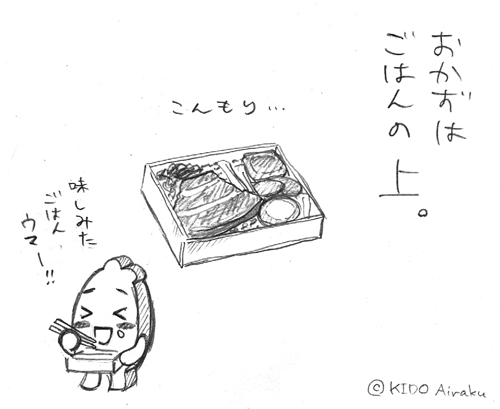 おかずは
ごはんの上。
こんもり…
味しみた
ごはん、
ウマー!!
© KIDO Airaku